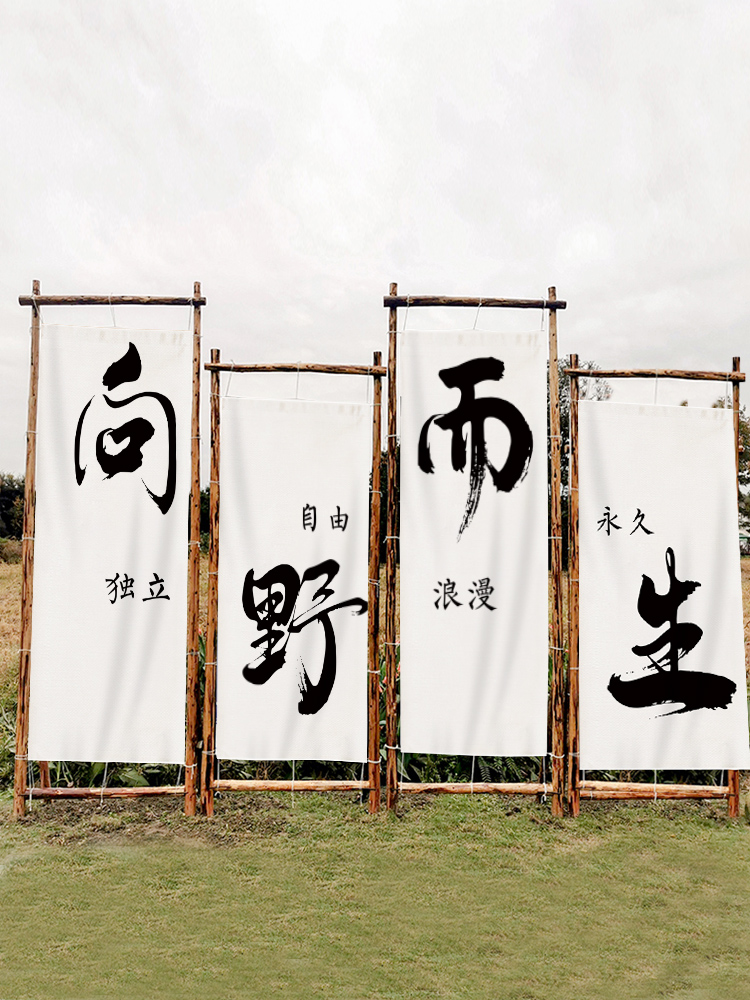 向
独立
自由
野
而
浪漫
永久
生